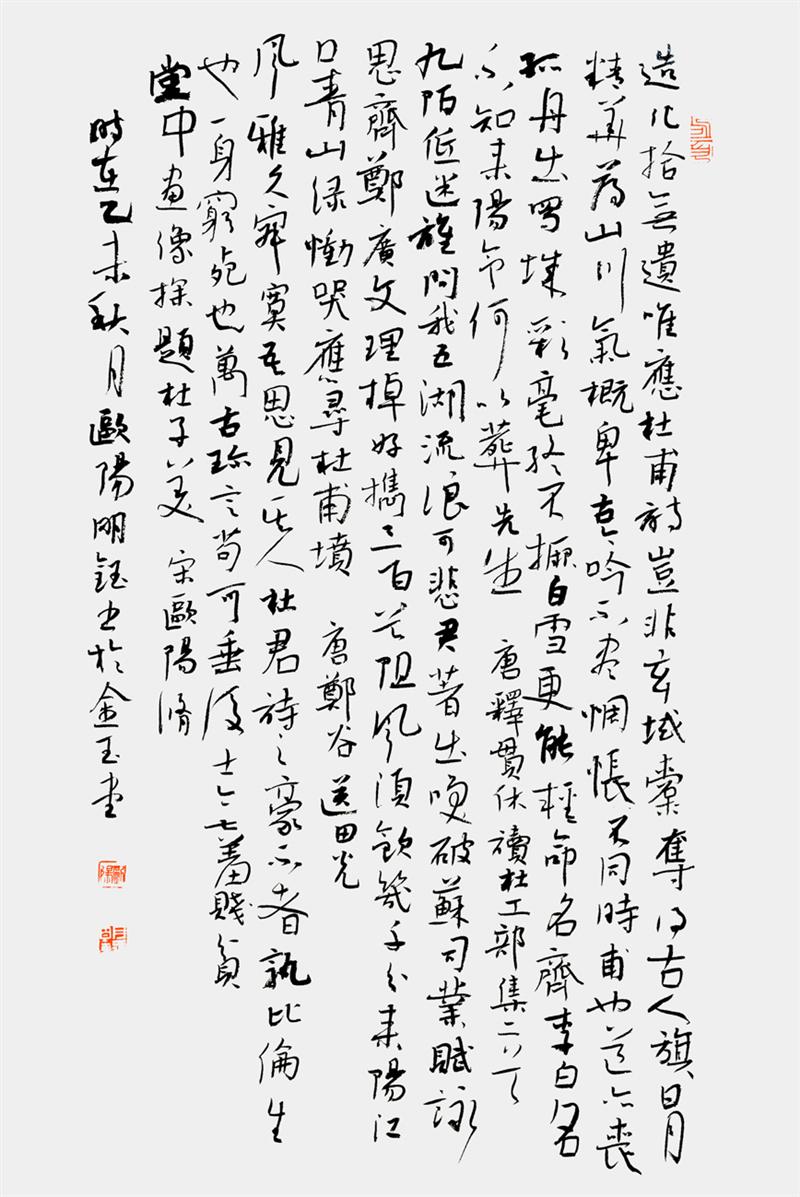 造化拾無遺唯應杜甫詩豈非玄域橐奪得古人旗日月
精華薄山川氣概卑古今吟不盡惆悵不同時甫也道亦喪
孤丹出蜀城彩毫終不撅白雪更能輕命名齊李白名
不知耒陽令何以葬先生 唐釋貫休讀杜工部集二首
九陌低迷誰問我五湖流浪可悲君著書笑破蘇司業賦詠
思齊鄭廣文理棹好攜三百首阻風須飲幾千分耒陽江
口青山綠慟哭應尋杜甫墳 唐鄭谷送田光
風雅久寂寞吾思見其人杜君詩之豪來者孰比倫生
也一身窮死也萬古珍言苟可垂後士無羞賤貧
堂中畫像探題杜子美 宋歐陽脩
時在乙未秋月歐陽明鈺書於金玉堂